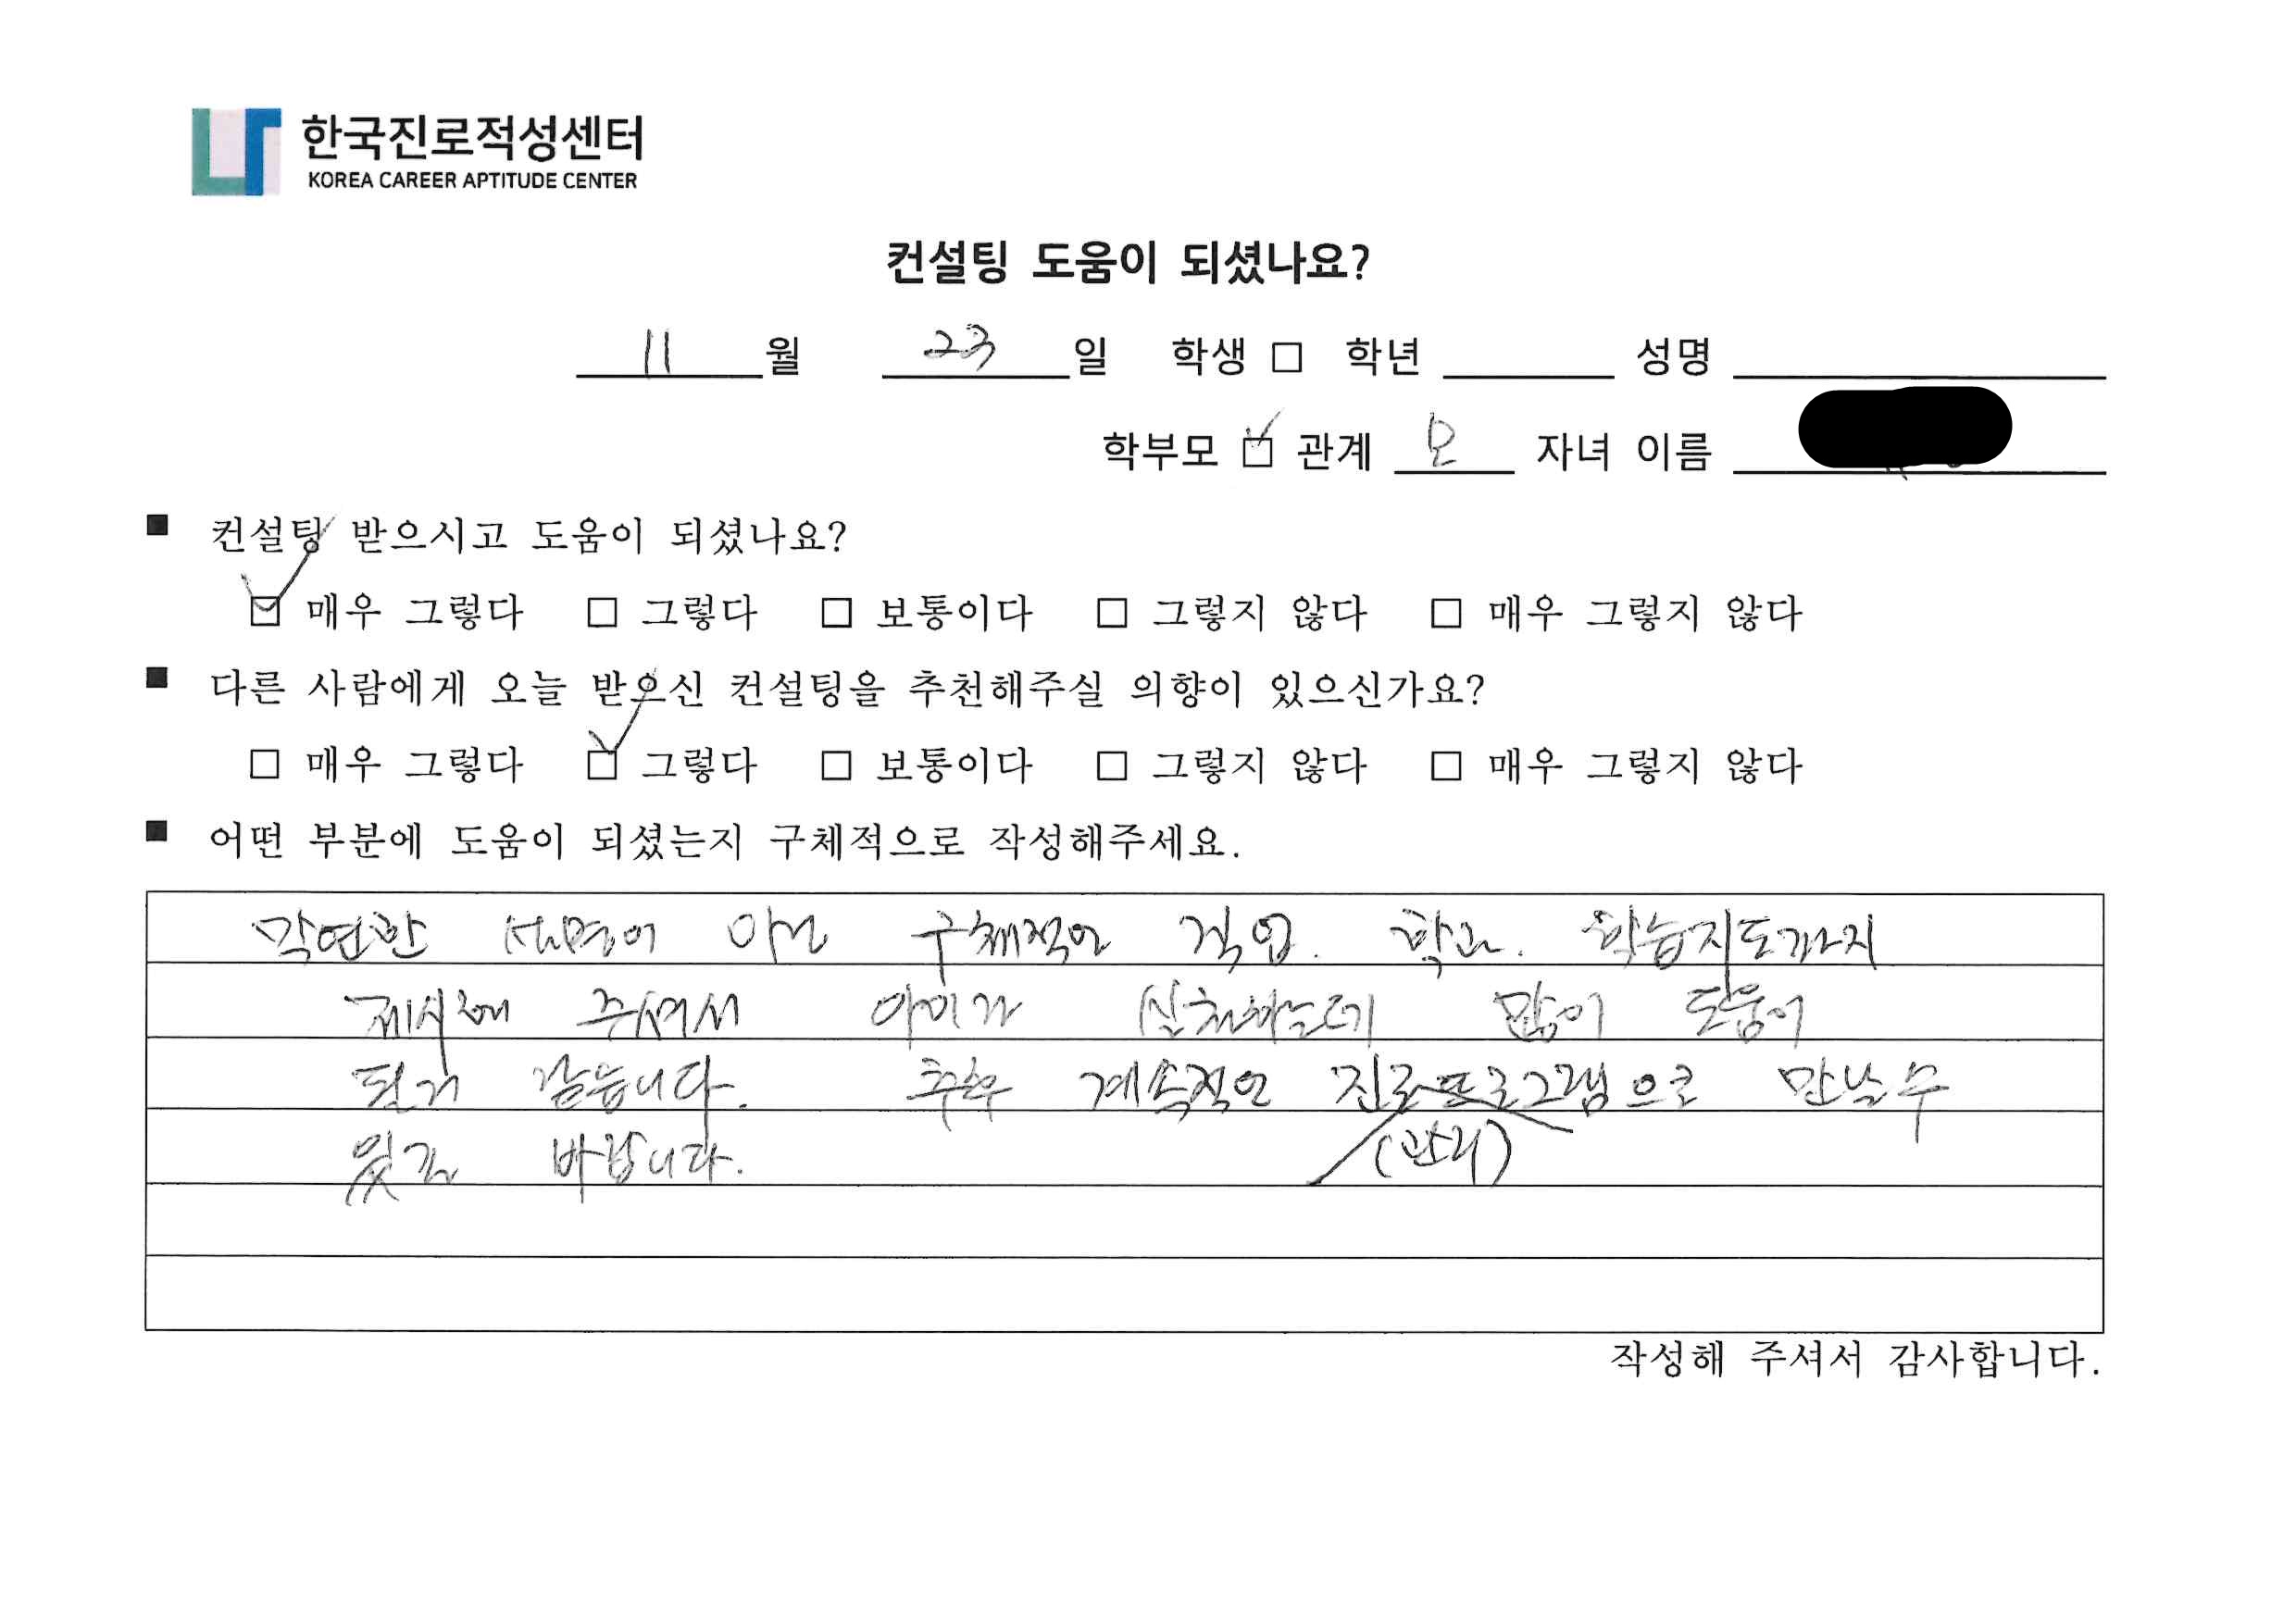 한국진로적성센터
KOREA CAREER APTITUDE CENTER
컨설팅 도움이 되셨나요?
11 월 23 일 학생 □ 학년 성명
학부모 ☑ 관계 모 자녀 이름
■ 컨설팅 받으시고 도움이 되셨나요?
☑ 매우 그렇다 □ 그렇다 □ 보통이다 □ 그렇지 않다 □ 매우 그렇지 않다
■ 다른 사람에게 오늘 받으신 컨설팅을 추천해주실 의향이 있으신가요?
□ 매우 그렇다 ☑ 그렇다 □ 보통이다 □ 그렇지 않다 □ 매우 그렇지 않다
■ 어떤 부분에 도움이 되셨는지 구체적으로 작성해주세요.
막연한 설명이 아닌 구체적인 직업. 학과. 학습지도까지
제시해 주셔서 아이가 실천하는데 많이 도움이
될거 같습니다. 추후 계속적인 진로프로그램으로 만날수
있길 바랍니다. (관리)
작성해 주셔서 감사합니다.